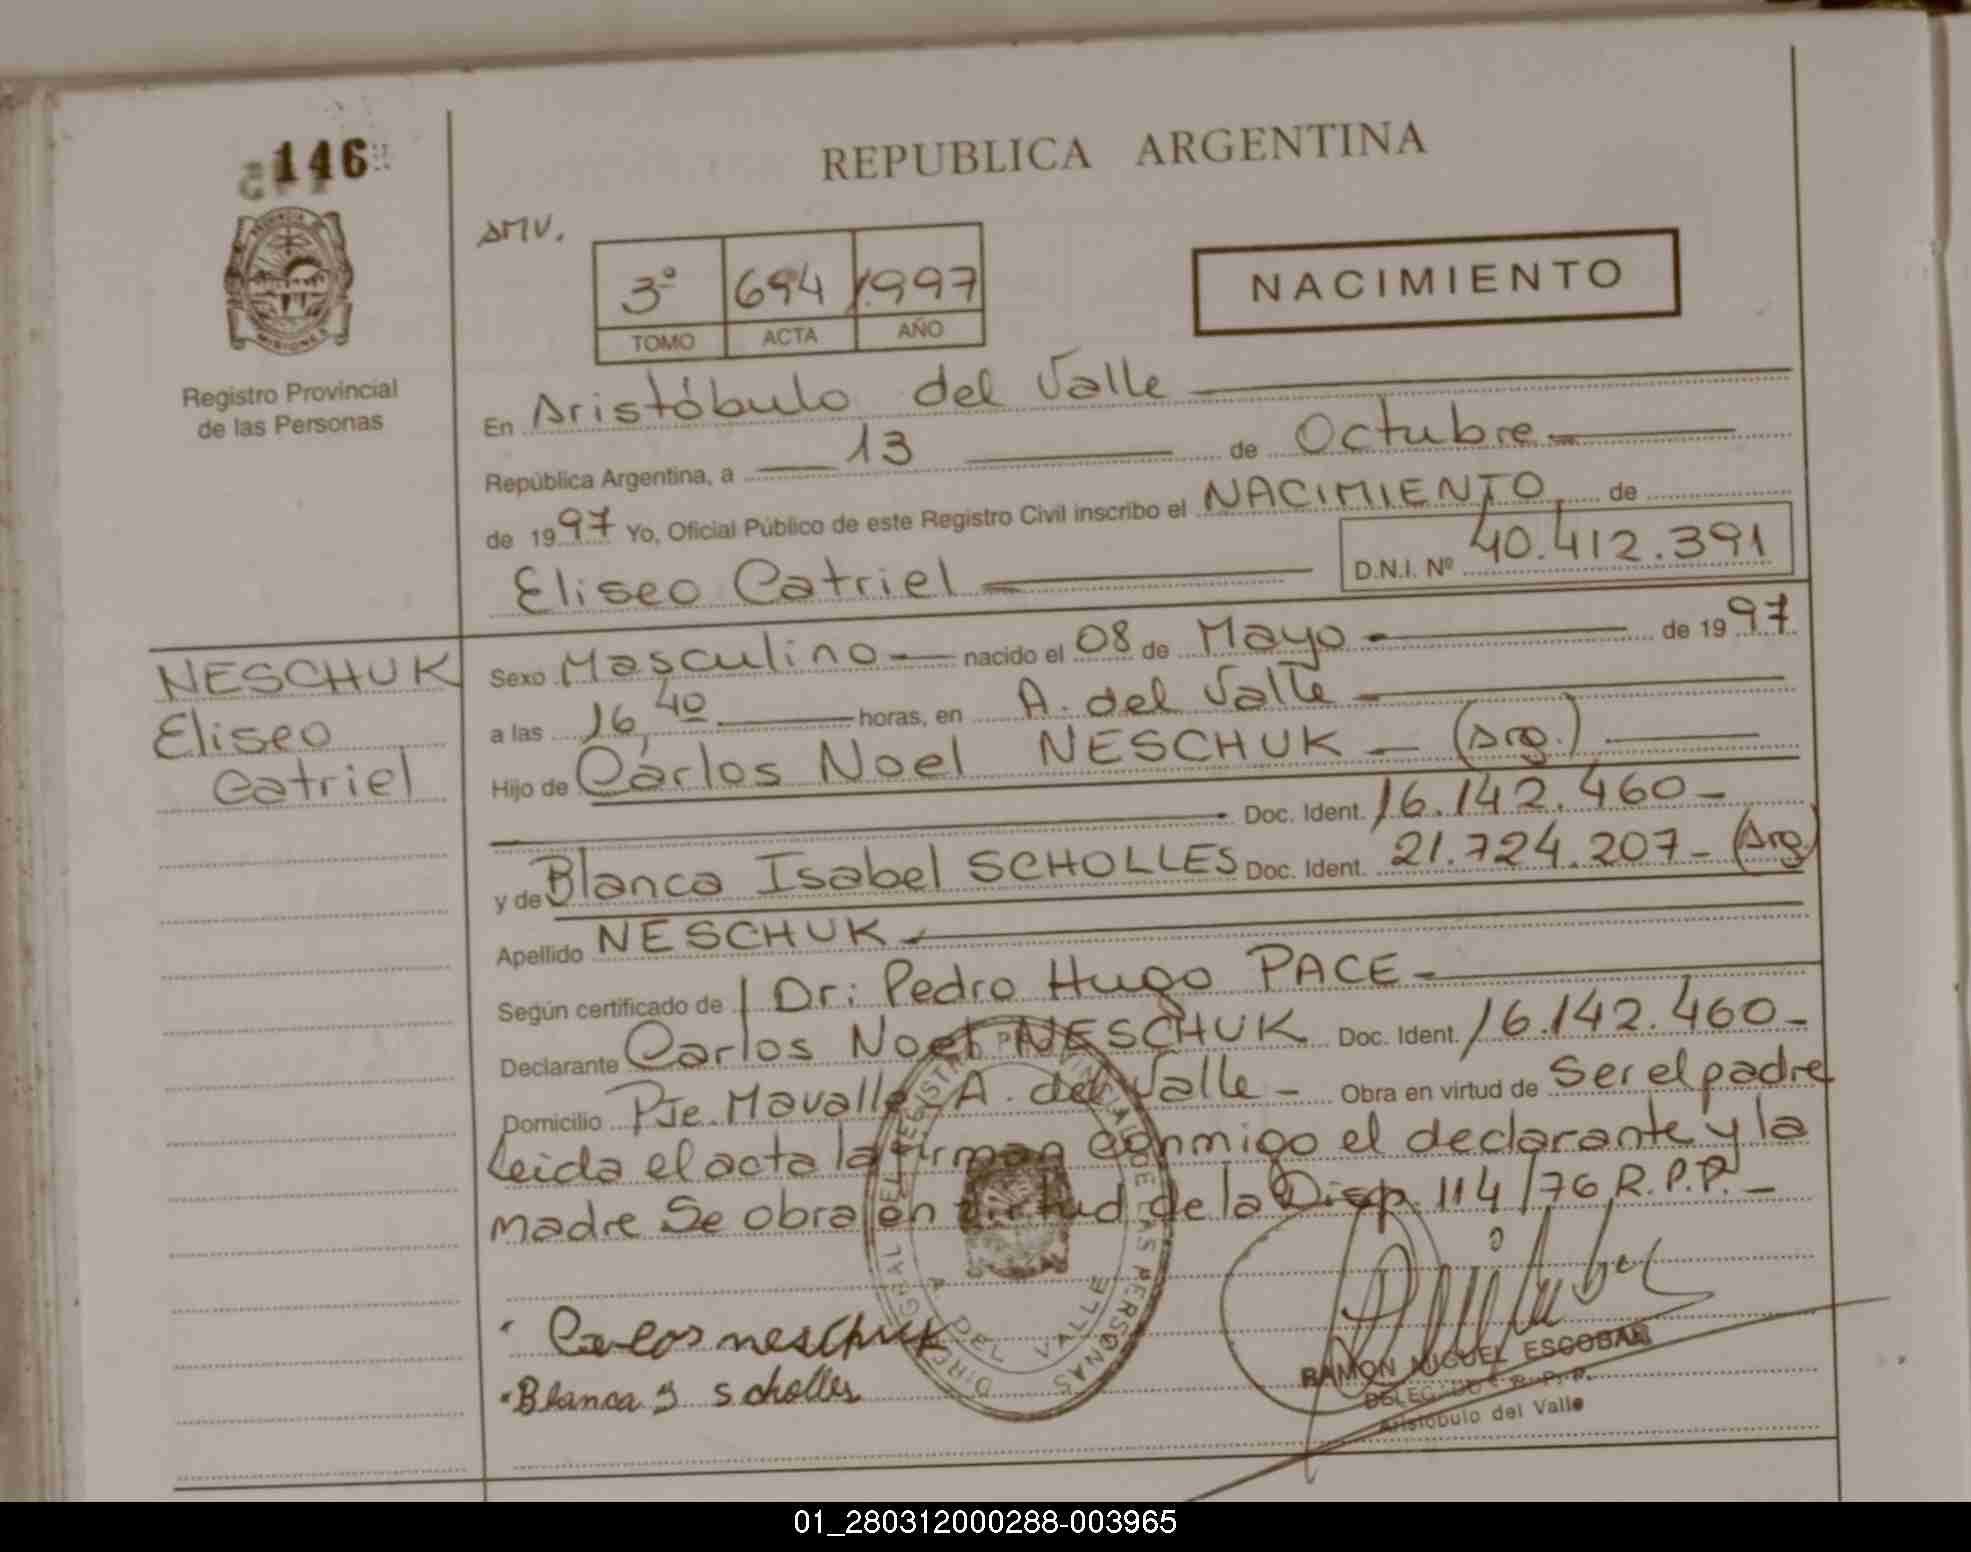 146
REPUBLICA ARGENTINA
AMV.
PROVINCIA
MISIONES
3º 694 1.997
TOMO ACTA AÑO
NACIMIENTO
Registro Provincial
de las Personas
En Aristóbulo del Valle
República Argentina, a 13 de Octubre
de 1997 Yo, Oficial Público de este Registro Civil inscribo el NACIMIENTO de
Eliseo Catriel D.N.I. Nº 40.412.391
NESCHUK
Eliseo
Catriel
Sexo Masculino nacido el 08 de Mayo de 1997
a las 16,40 horas, en A. del Valle
Hijo de Carlos Noel NESCHUK - (Arg.)
Doc. Ident. 16.142.460-
y de Blanca Isabel SCHOLLES Doc. Ident. 21.724.207- (Arg)
Apellido NESCHUK
Según certificado de Dr: Pedro Hugo PACE-
Declarante Carlos Noel NESCHUK Doc. Ident. 16.142.460-
Domicilio Pje. Mavalle-A. del Valle- Obra en virtud de Ser el padre
Leida el acta la firman conmigo el declarante y la
madre Se obra en virtud de la Disp. 114/76 R.P.P.-
DIRECC GRAL DEL REGISTRO PROVINCIAL DE LAS PERSONAS
A DEL VALLE
Carlos neschuk
Blanca I scholles
RAMON MIGUEL ESCOBAR
DELEGADO R.P.P.
Aristobulo del Valle
01_280312000288-003965